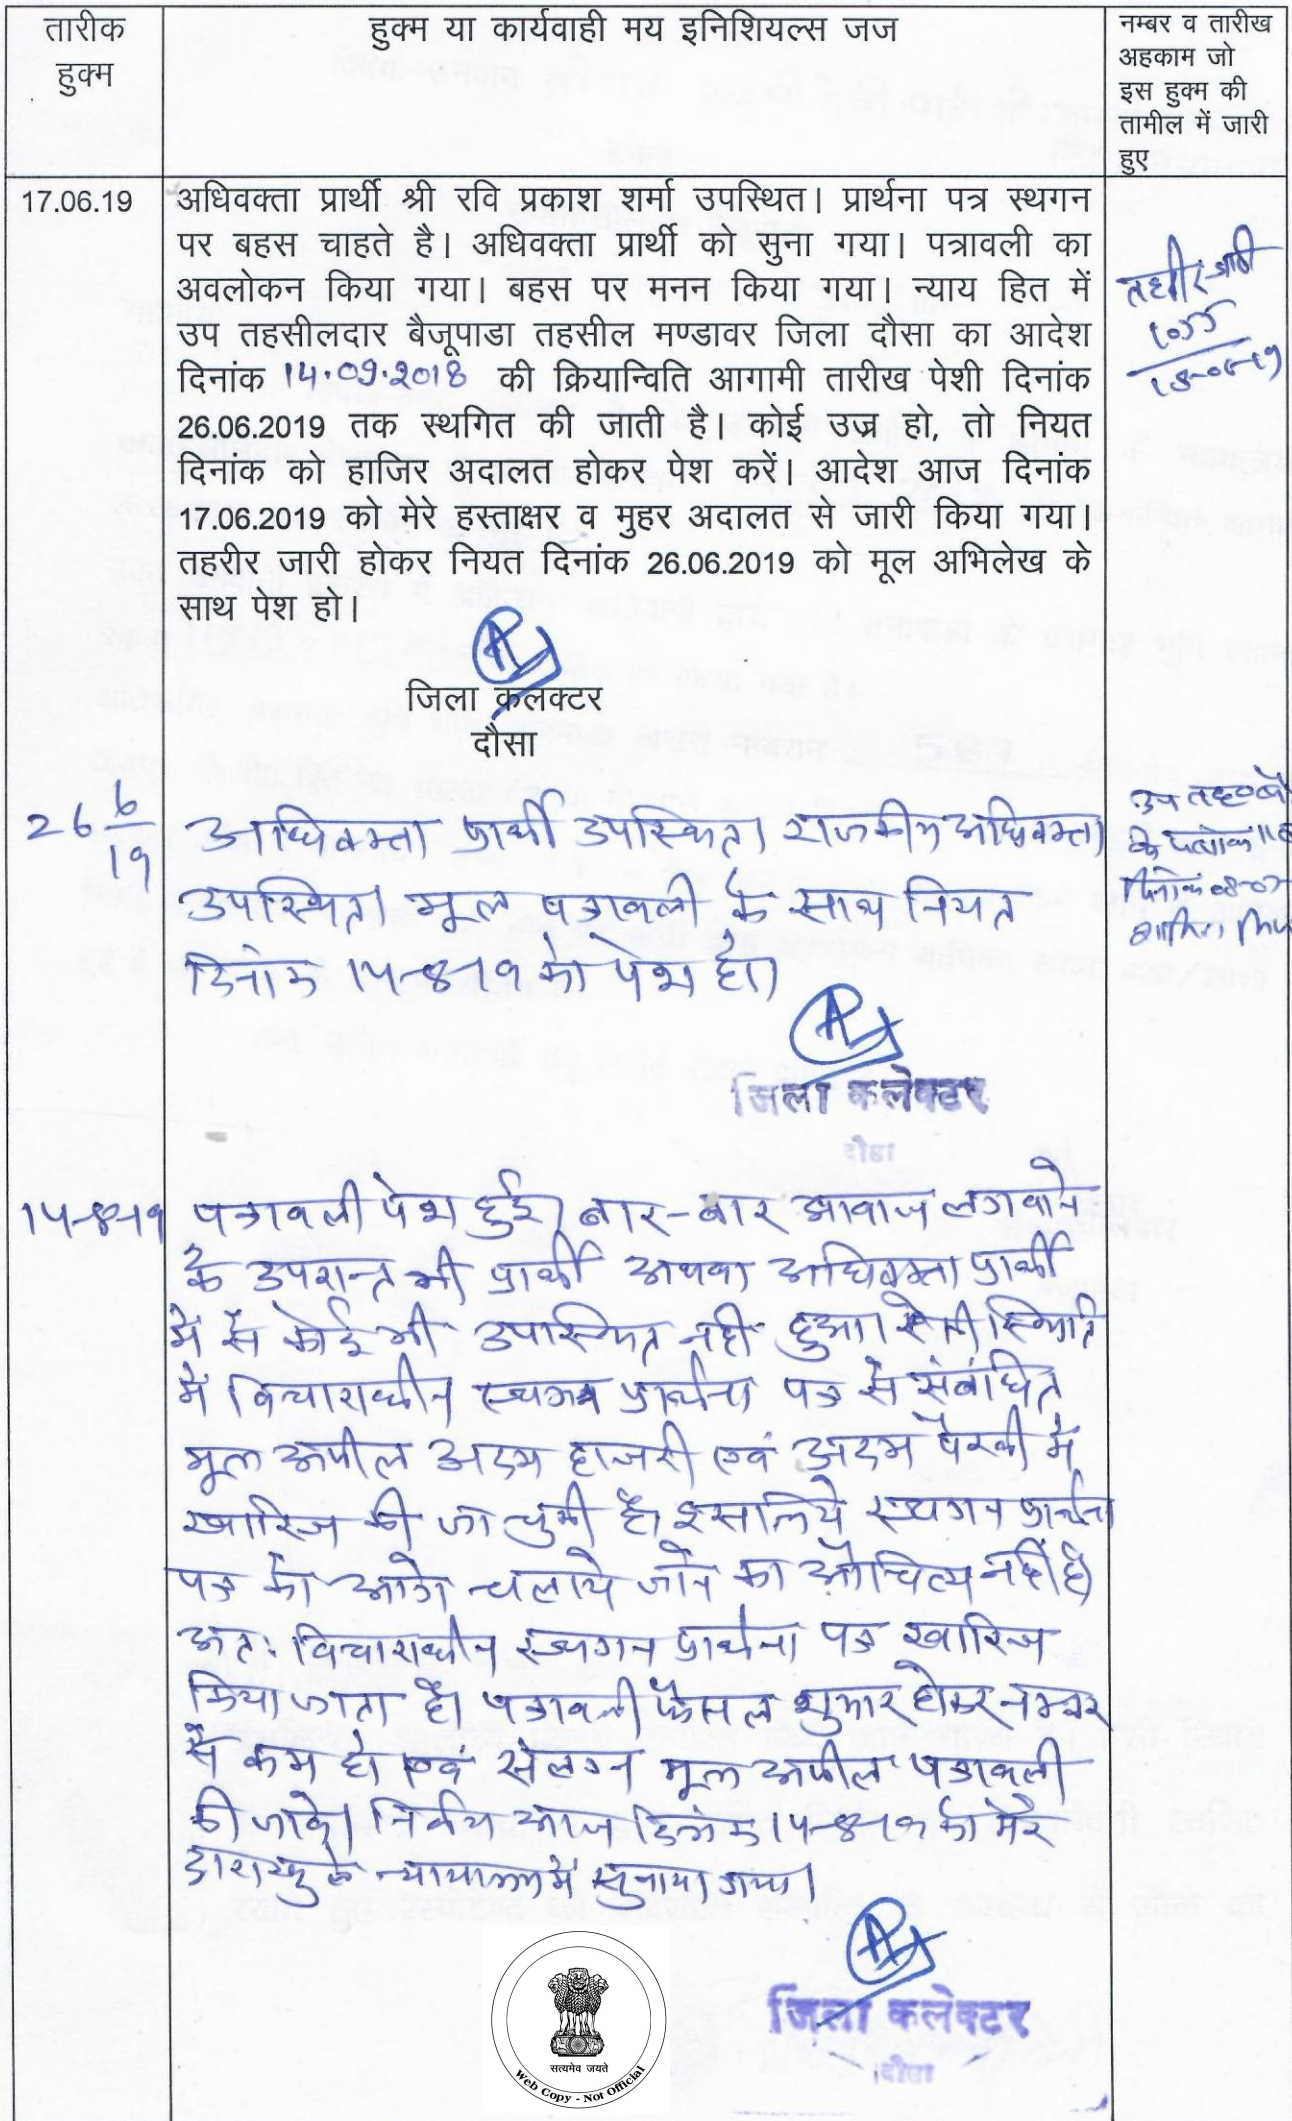 तारीक
हुक्म
हुक्म या कार्यवाही मय इनिशियल्स जज
नम्बर व तारीख
अहकाम जो
इस हुक्म की
तामील में जारी
हुए
17.06.19
अधिवक्ता प्रार्थी श्री रवि प्रकाश शर्मा उपस्थित। प्रार्थना पत्र स्थगन
पर बहस चाहते है। अधिवक्ता प्रार्थी को सुना गया। पत्रावली का
अवलोकन किया गया। बहस पर मनन किया गया। न्याय हित में
उप तहसीलदार बैजूपाडा तहसील मण्डावर जिला दौसा का आदेश
दिनांक 14.09.2018 की क्रियान्विति आगामी तारीख पेशी दिनांक
26.06.2019 तक स्थगित की जाती है। कोई उज्र हो, तो नियत
दिनांक को हाजिर अदालत होकर पेश करें। आदेश आज दिनांक
17.06.2019 को मेरे हस्ताक्षर व मुहर अदालत से जारी किया गया।
तहरीर जारी होकर नियत दिनांक 26.06.2019 को मूल अभिलेख के
साथ पेश हो।
तहरीर जारी
जिला कलक्टर
दौसा
26 6/19
अधिवक्ता प्रार्थी उपस्थित। राजकीय अधिवक्ता
उपस्थित। मूल पत्रावली के साथ नियत
दिनांक 14-8-19 को पेश हो।
जिला कलेक्टर
दौसा
14-8-19
पत्रावली पेश हुई। बार-बार आवाज लगवाने
के उपरान्त भी प्रार्थी अथवा अधिवक्ता प्रार्थी
में से कोई भी उपस्थित नही हुआ। ऐसी स्थिति
में विचाराधीन स्थगन प्रार्थना पत्र से संबंधित
मूल अपील अदम हाजरी एवं अदम पैरवी में
खारिज की जा चुकी है। इसलिये स्थगन प्रार्थना
पत्र को आगे चलाये जाने का औचित्य नहीं है।
अत: विचाराधीन स्थगन प्रार्थना पत्र खारिज
किया जाता है। पत्रावली फैसल शुमार होकर नम्बर
से कम हो एवं संलग्न मूल अपील पत्रावली
की जावे। निर्णय आज दिनांक 14-8-19 को मेरे
द्वारा खुले न्यायालय में सुनाया गया।
जिला कलेक्टर
दौसा
सत्यमेव जयते
Web Copy - Not Official